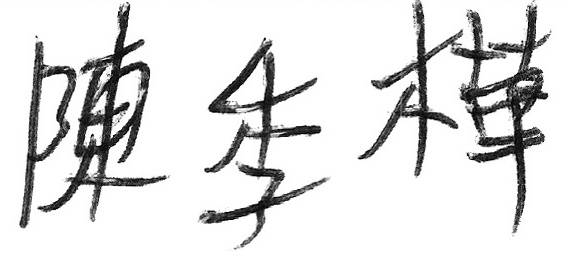 陳季樺